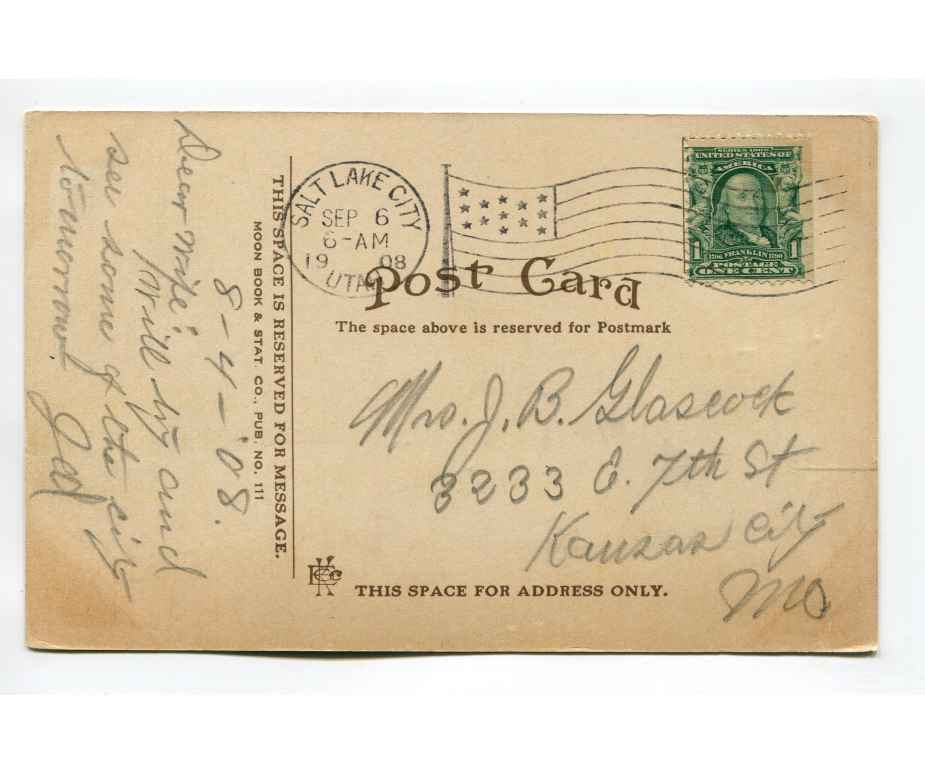 8-4-'08.
Dear mike:
Will try and
see some of the city
tomorrow.
THIS SPACE IS RESERVED FOR MESSAGE.
MOON BOOK & STAT. CO., PUB. NO. 111
SALT LAKE CITY
SEP 6
6-AM
19 08
UTAH
SERIES 1902
UNITED STATES OF
AMERICA
1 1
1706 FRANKLIN 1790
POSTAGE
ONE CENT
Post Card
The space above is reserved for Postmark
Mrs. J. B. Glascock
3233 E. 7th St
Kansas City
Mo
THIS SPACE FOR ADDRESS ONLY.